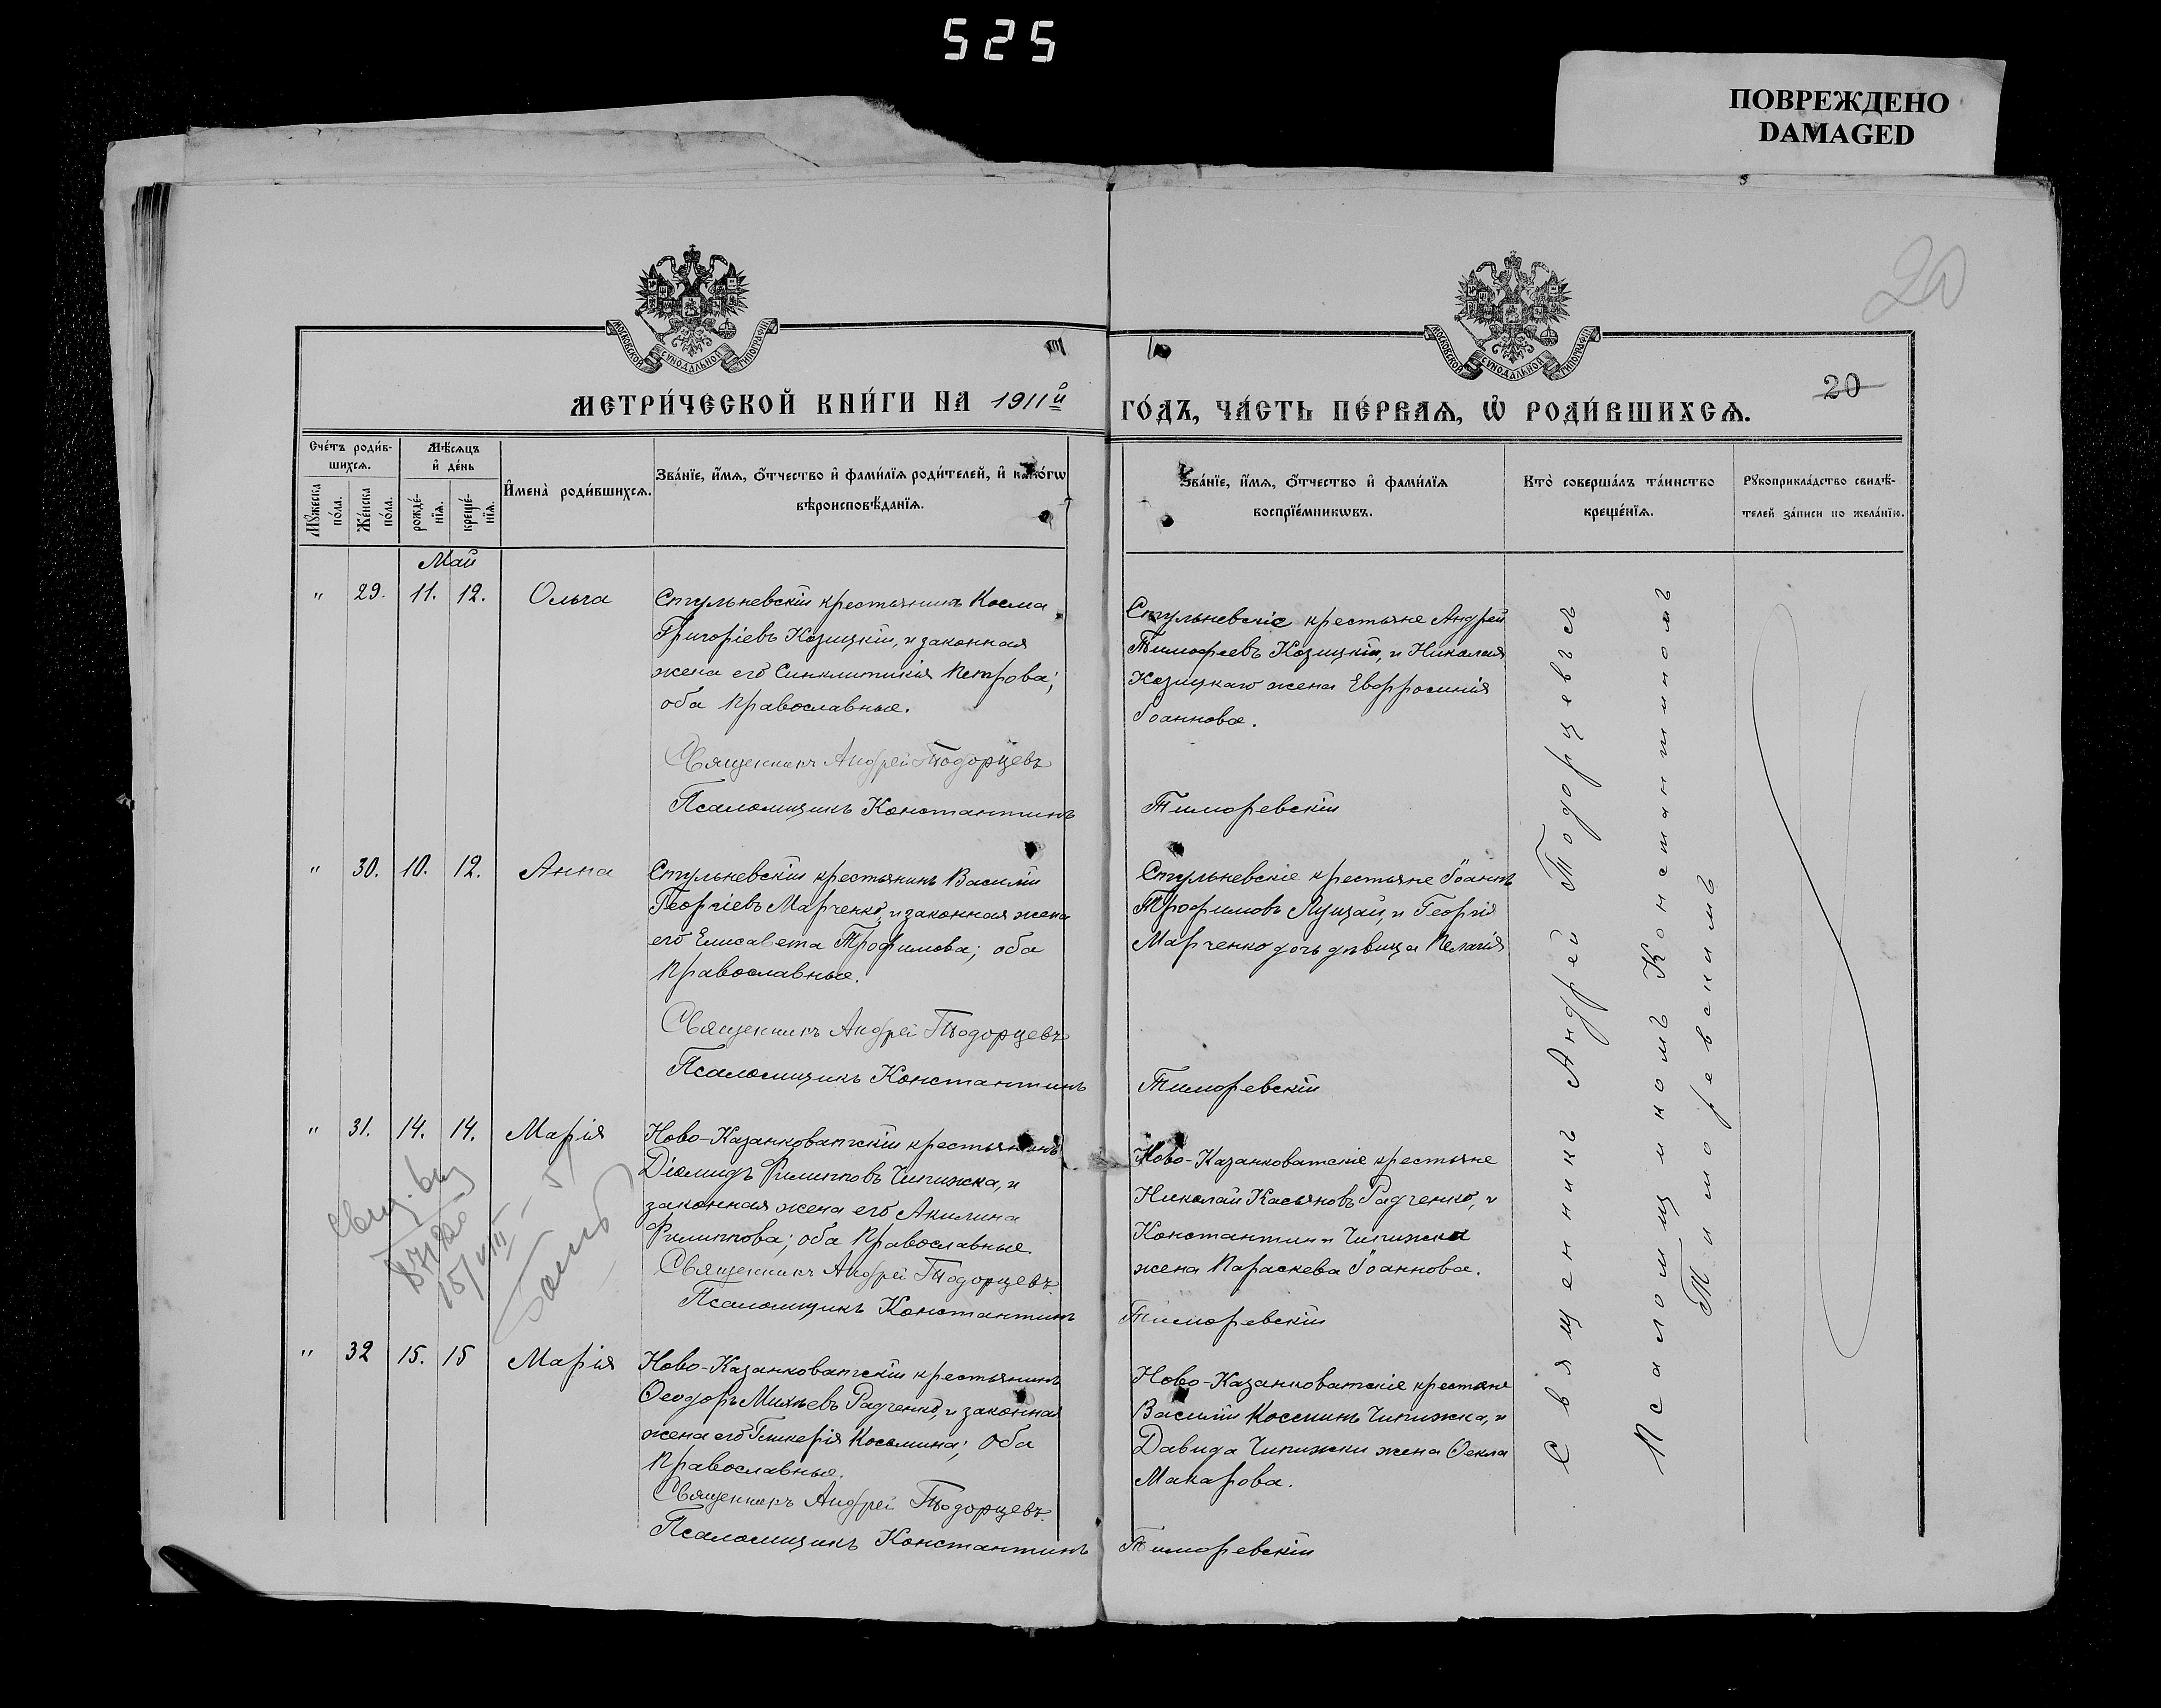 525
ПОВРЕЖДЕНО
DAMAGED
20
МОСКОВСКОЙ СѴНОДАЛЬНОЙ ТИПОГРАФІИ
МОСКОВСКОЙ СѴНОДАЛЬНОЙ ТИПОГРАФІИ
20
МЕТРИ́ЧЕСКОЙ КНИ́ГИ НА 1911й
ГО́ДЪ, ЧА́СТЬ ПЕ́РВАѦ, Ѡ҆ РОДИ́ВШИХСѦ.
Сче́тъ роди́в-
шихсѧ.
Мꙋ́жеска
по́ла.
Же́нска
по́ла.
Мѣ́сѧцъ
и҆ де́нь
рожде́-
нїѧ.
креще́-
нїѧ.
И҆мена̀ роди́вшихсѧ.
Зва́нїе, и҆́мѧ, ѻ҆́тчество и҆ фами́лїѧ роди́телей, и҆ како́гѡ
вѣроисповѣ́данїѧ.
Зва́нїе, и҆́мѧ, ѻ҆́тчество и҆ фами́лїѧ
воспрїе́мникѡвъ.
Кто̀ соверша́лъ та́инство
креще́нїѧ.
Рꙋкоприкла́дство свидѣ́-
телей за́писи по жела́нїю.
Май
" 29. 11. 12. Ольга
Стульневскій крестьянинъ Косма
Григоріевъ Козицкій, и законная
жена его Синклитикія Петрова;
оба православные.
Священникъ Андрей Тодорцевъ
Псаломщикъ Константинъ
Стульневскіе крестьяне Андрей
Тимофеевъ Козицкій, и Николая
Козицкаго жена Евфросинія
Іоаннова.
Тиморевскій
" 30. 10. 12. Анна
Стульневскій крестьянинъ Василій
Георгіевъ Марченко, и законная жена
его Елисавета Трофимова; оба
православные.
Священникъ Андрей Тодорцевъ
Псаломщикъ Константинъ
Стульневскіе крестьяне Іоаннъ
Трофимовъ Луцай, и Георгія
Марченко дочь дѣвица Пелагія
Тиморевскій
" 31. 14. 14. Марія
Ново-Казанковатскій крестьянинъ
Діомидъ Филипповъ Чипижка, и
законная жена его Акилина
Филиппова; оба православные.
Священникъ Андрей Тодорцевъ.
Псаломщикъ Константинъ
Ново-Казанковатскіе крестьяне
Николай Касьяновъ Радченко, и
Константина Чипижки
жена Параскева Іоаннова.
Тиморевскій
" 32 15. 15 Марія
Ново-Казанковатскій крестьянинъ
Ѳеодоръ Михѣевъ Радченко, и законная
жена его Гликерія Косьмина; оба
православные.
Священникъ Андрей Тодорцевъ.
Псаломщикъ Константинъ
Ново-Казанковатскіе крестьяне
Василій Космин Чипижка, и
Давида Чипижки жена Ѳекла
Макарова.
Тиморевскій
Священникъ Андрей Тодорцевъ съ
Псаломщикомъ Константиномъ
Тиморевскимъ